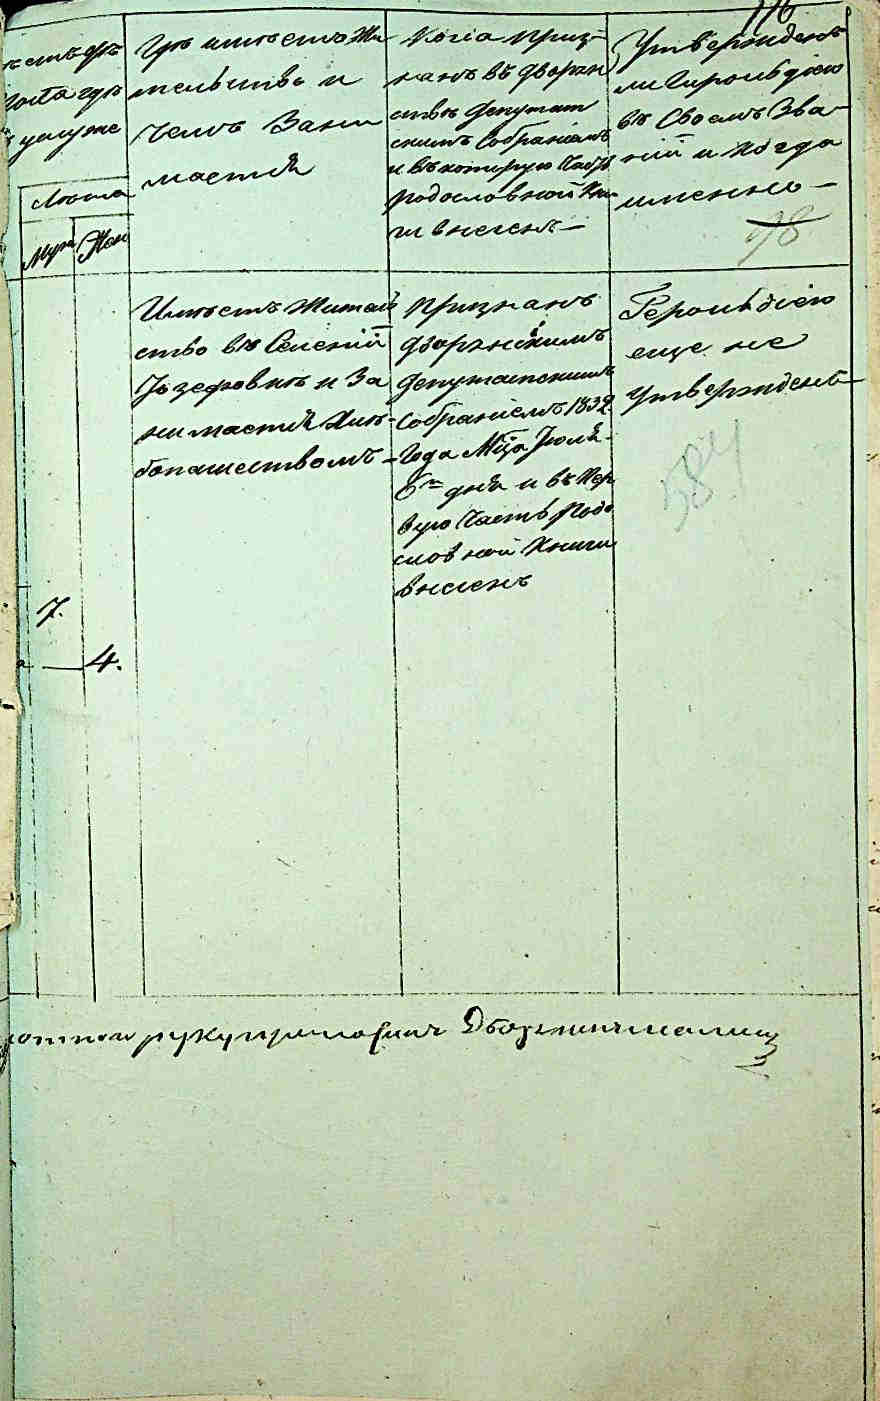 176
Гдѣ имѣетъ Жи
тельство и
чемъ Зани
мается
Когда приз-
нанъ въ дворян
ствѣ Депутат
скимъ Собраніемъ
и въ которую Часть
родословной Кни
ги внесенъ —
Утвержденъ
ли Герольдіею
въ Своемъ Зва-
ніи и когда
именно —
98
Муж
Жен
Имѣетъ Житель
ство въ Селеніи
Юзефовкѣ и За
нимается Хлѣ-
бопашествомъ —
признанъ
дворянскимъ
Депутатскимъ
Собраніемъ 1832
года Мца Іюля
6го дня и въ Пер
вую Часть Родо
словной Книги
внесенъ
Герольдіею
еще не
утвержденъ
584
7.
4.
руку приложилъ Дворянинъ